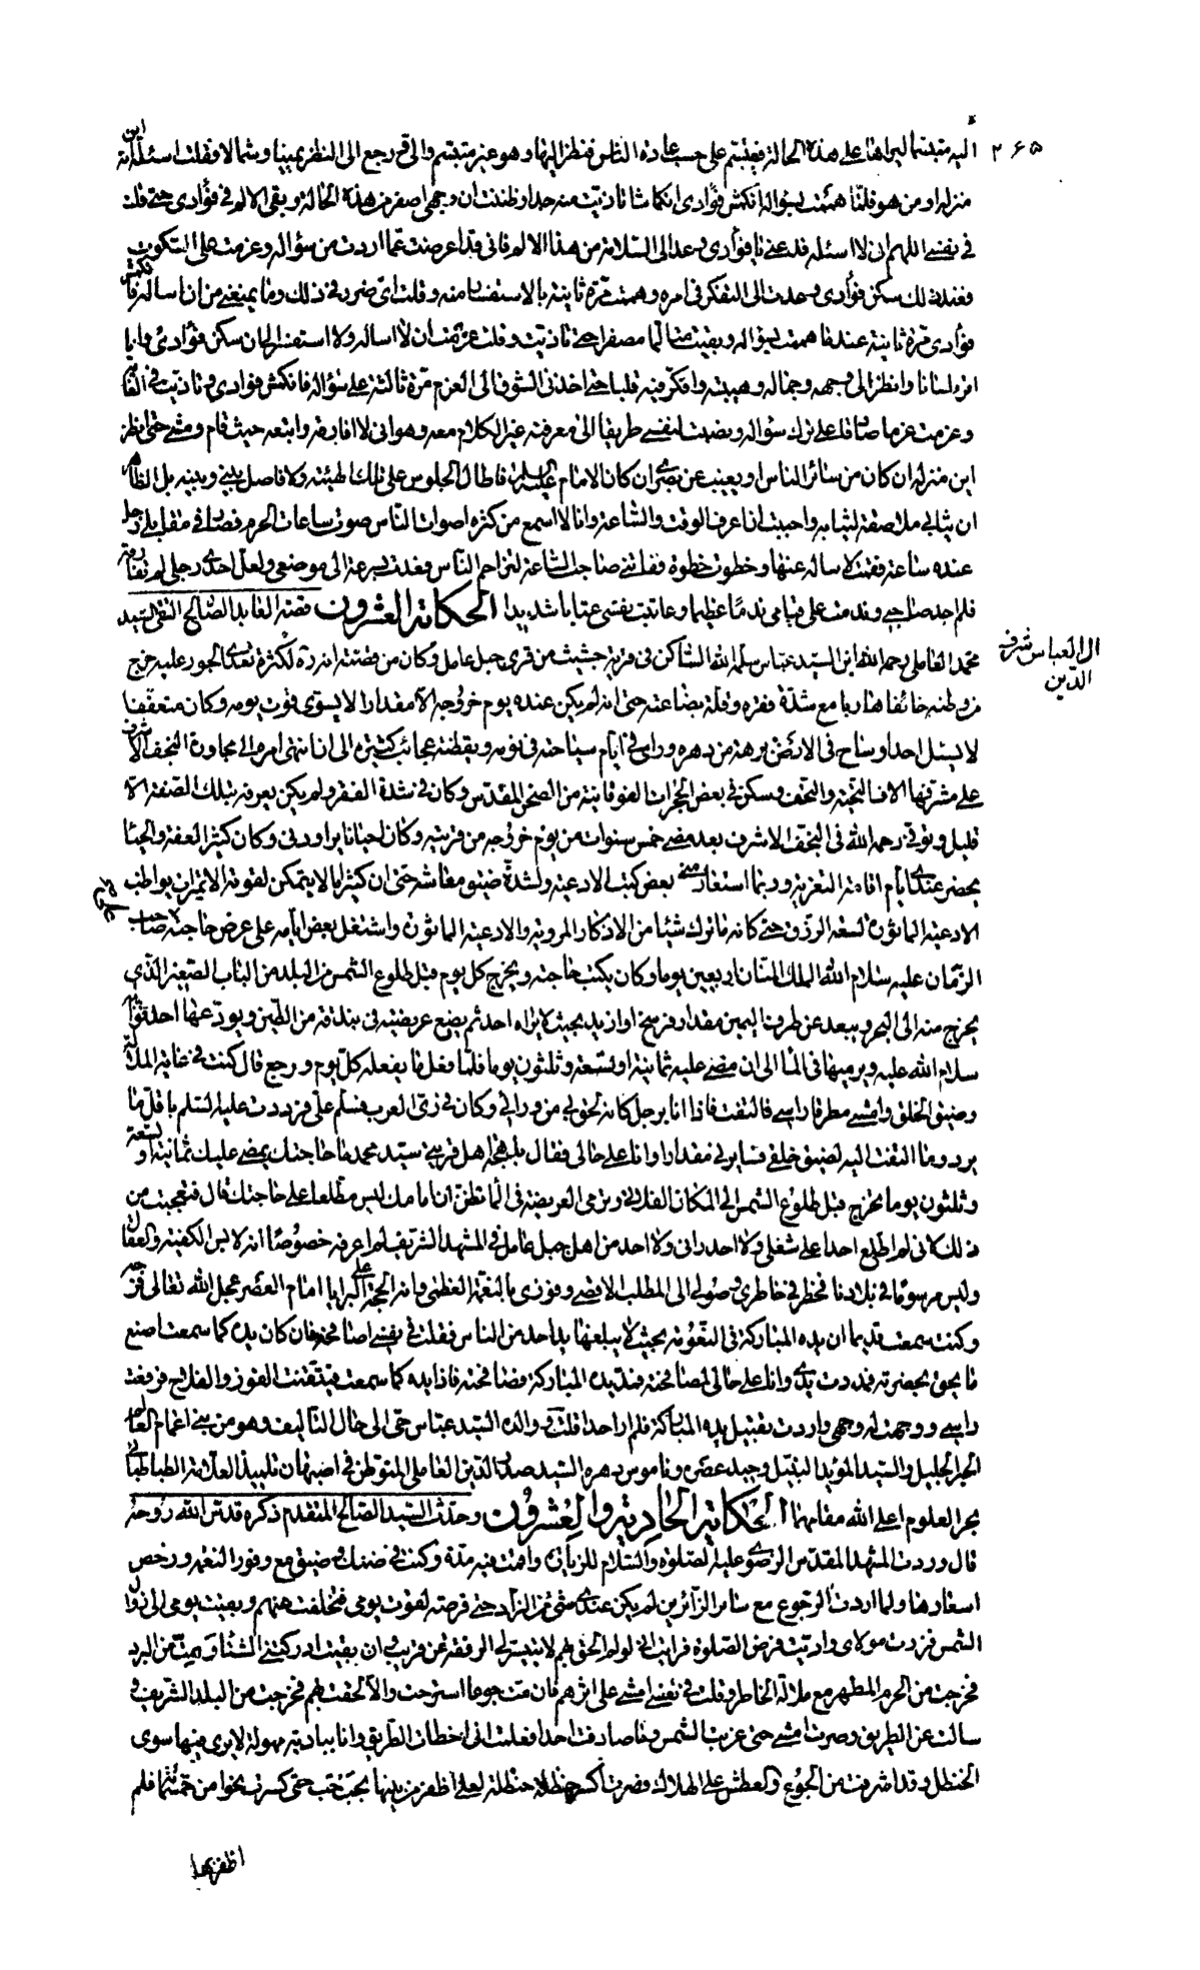 ٢٦٥
اليه متبسما ليراها على هذه الحالة فيتبسم على حسب عادة الناس فنظر اليها وهو غير متبسم والي ورجع الى النظر يمينا وشمالا فقلت اسئله انه اين
منزله ومن هو فلما هممت بسؤاله انكمش فؤادي انكماشا تاذيت منه جدا وظننت ان وجهي اصفر من هذه الحالة وبقي الالم في فؤادي حتى قلت
في نفسي اللهم اني لا اسئله فدعني يا فؤادي وعد الى السلامة من هذا الالم فاني قد اعرضت عما اردت من سؤاله وعزمت على السكوت
فعند ذلك سكن فؤادي وعدت الى التفكر في امره وهممت مرة ثانية بالاستفسار منه وقلت اي ضرر في ذلك وما يمنعني من ان اساله فانكمش
فؤادي مرة ثانية عندما هممت بسؤاله وبقيت متألما مصفرا حتى تاذيت وقلت عزمت ان لا اساله ولا استفسر الى ان سكن فؤادي وانا
اقرء لسانا وانظر الى وجهه وجماله وهيبته وافكر فيه قلبا حتى اخذني الشوق الى العزم مرة ثالثة على سؤاله فانكمش فؤادي وتاذيت في الغاية
وعزمت عزما صادقا على ترك سؤاله ونصبت لنفسي طريقا الى معرفته غير الكلام معه وهو اني لا افارقه واتبعه حيث قام ومشى حتى انظر
اين منزله ان كان من سائر الناس او يغيب عن بصري ان كان الامام عليه السلم فاطال الجلوس على تلك الهيئة ولا فاصل بيني وبينه بل الظاهر
ان ثيابي ملاصقة لثيابه واحببت ان اعرف الوقت والساعة وانا لا اسمع من كثرة اصوات الناس صوت ساعات الحرم فصار في مقابلي رجل
عنده ساعة فقمت لاساله عنها وخطوت خطوة ففاتني صاحب الساعة لتزاحم الناس فعدت بسرعة الى موضعي ولعل احدى رجلي لم تفارقه
فلم اجد صاحبي وندمت على قيامي ندما عظيما وعاتبت نفسي عتابا شديدا الحكاية العشرون قصة العابد الصالح التقي السيد
محمد العاملي رحمه الله ابن السيد عباس سلمه الله الساكن في قرية جشيث من قرى جبل عامل وكان من قصته انه ره لكثرة تعدي الجور عليه خرج
ال العباس شرف الدين
من وطنه خائفا هاربا مع شدة فقره وقلة بضاعته حتى انه لم يكن عنده يوم خروجه الا مقدارا لا يسوى قوت يومه وكان متعففا
لا يسئل احدا وساح في الارض برهة من دهره وراى في ايام سياحته في نومه ويقظته عجائب كثيرة الى ان انتهى امره الى مجاورة النجف الاشرف
على مشرفها الاف التحية والتحف وسكن في بعض الحجرات الفوقانية من الصحن المقدس وكان في شدة الفقر ولم يكن يعرفه بتلك الصفة الا
قليل وتوفي رحمه الله في النجف الاشرف بعد مضي خمس سنوات من يوم خروجه من قريته وكان احيانا يراودني وكان كثير العفة والحياء
يحضر عندي ايام اقامة التعزية وربما استعار مني بعض كتب الادعية ولشدة ضيق معاشه حتى ان كثيرا ما لا يتمكن لقوته الا تميرات يواظب
الادعية الماثورة لسعة الرزق حتى كانه ما ترك شيئا من الاذكار المروية والادعية الماثورة واشتغل بعض ايامه على عرض حاجته على صاحب
الزمان عليه سلام الله الملك المنان اربعين يوما وكان يكتب حاجته ويخرج كل يوم قبل طلوع الشمس من البلد من الباب الصغير الذي
يخرج منه الى البحر ويبعد عن طرف اليمين مقدار فرسخ او ازيد بحيث لا يراه احد ثم يضع عريضته في بندقة من الطين ويودعها احد نوابه
سلام الله عليه ويرميها في الماء الى ان مضى عليه ثمانية او تسعة وثلثون يوما فلما فعل ما يفعله كل يوم ورجع قال كنت في غاية الملالة
وضيق الخلق وامشي مطرقا راسي فالتفت فاذا انا برجل كانه لحق بي من ورائي وكان في زي العرب فسلم علي فرددت عليه السلم باقل ما
يرد وما التفت اليه لضيق خلقي فسايرني مقدارا وانا على حالي فقال بلهجة اهل قريتي سيد محمد ما حاجتك يمضي عليك ثمانية او تسعة
وثلثون يوما تخرج قبل طلوع الشمس الى المكان الفلاني وترمي العريضة في الماء تظن ان امامك ليس مطلعا على حاجتك قال فتعجبت من
ذلك كاني لم اطلع احدا على شغلي ولا احد راني ولا احد من اهل جبل عامل في المشهد الشريف لم اعرفه خصوصا انه لابس الكفية والعقال
وليس مرسوما في بلادنا فخطر في خاطري وصولي الى المطلب الاقصى وفوزي بالنعمة العظمى وانه الحجة على البرايا امام العصر عجل الله تعالى فرجه
وكنت سمعت قديما ان يده المباركة في النعومة بحيث لا يبلغها يد احد من الناس فقلت في نفسي اصافحه فان كان يده كما سمعت اصنع
ما يحق بحضرته فمددت يدي وانا على حالي لمصافحته فمد يده المباركة فصافحته فاذا يده كما سمعت فتيقنت الفوز والفلاح فرفعت
راسي ووجهت له وجهي واردت تقبيل يده المباركة فلم ار احدا قلت ووالده السيد عباس حي الى حال التاليف وهو من بني اعمام العالم
الحبر الجليل والسيد المؤيد النبيل وحيد عصره وناموس دهره السيد صدر الدين العاملي المتوطن في اصبهان تلميذ العلامة الطباطبائي
بحر العلوم اعلى الله مقامهما الحكاية الحادية والعشرون وحدثني السيد الصالح المتقدم ذكره قدس الله روحه
قال وردت المشهد المقدس الرضوي عليه الصلوة والسلام للزيارة واقمت فيه مدة وكنت في ضنك وضيق مع وفور النعمة ورخص
اسعارها ولما اردت الرجوع مع سائر الزائرين لم يكن عندي شئ من الزاد حتى قرصة لقوت يومي فتخلفت عنهم وبقيت يومي الى زوال
الشمس فزرت مولاي واديت فرض الصلوة فرايت اني لو لم الحق بهم لا يتيسر لي الرفقة عن قريب وان بقيت ادركني الشتاء ومت من البرد
فخرجت من الحرم المطهر مع ملالة الخاطر وقلت في نفسي امشي على اثرهم فان مت جوعا استرحت والا لحقت بهم فخرجت من البلد الشريف و
سالت عن الطريق وصرت امشي حتى غربت الشمس وما صادفت احدا فعلمت اني اخطات الطريق وانا ببادية مهولة لا يرى فيها سوى
الحنظل وقد اشرفت من الجوع والعطش على الهلاك فصرت اكسر حنظلة حنظلة لعلي اظفر من بينها بحبحب حتى كسرت نحوا من خمسمائة فلم
اظفر بها